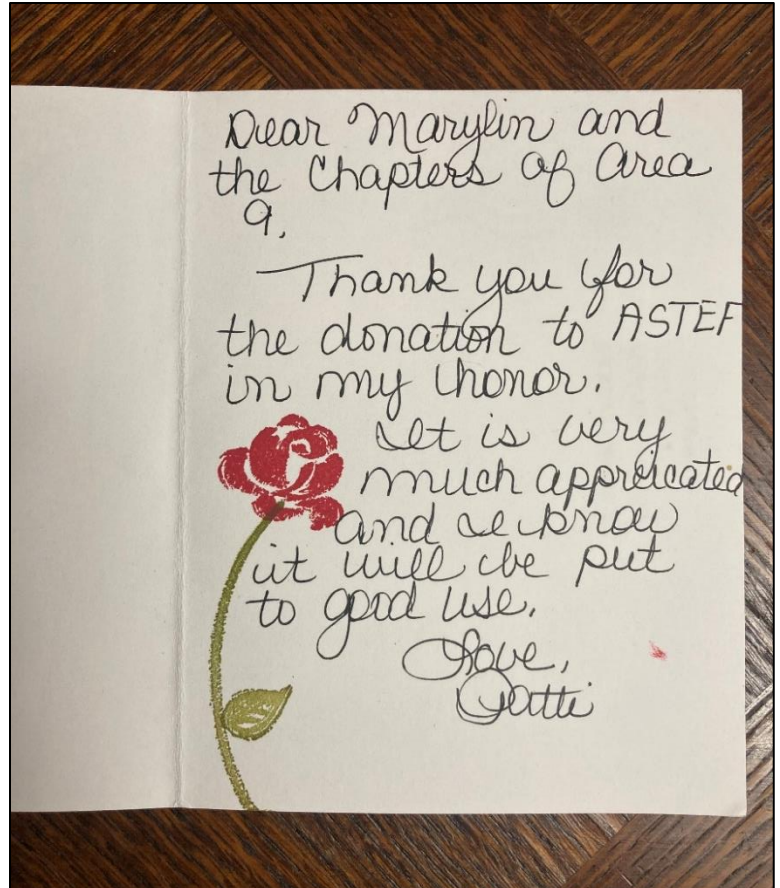 Dear Marylin and
the Chapters of Area
9,
Thank you for
the donation to ASTEF
in my honor.
It is very
much appreicated
and I know
it will be put
to good use.
Love,
Patti